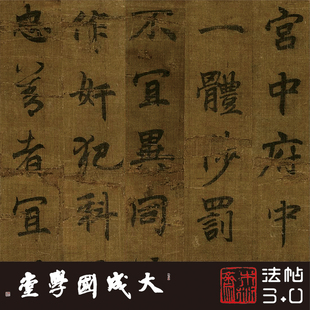 宮中府中
一體陟罰
不宜異同
作奸犯科
忠善者宜
大成國學堂
法帖
3.0